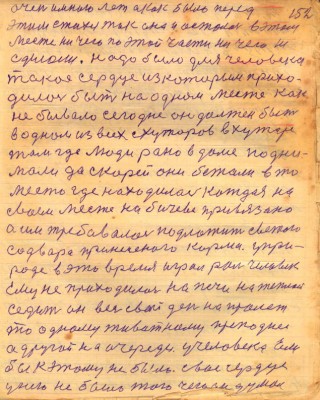 очен много лет а как было перед 152
этим стихи так она и осталас в этом
месте ничего по этой части ничего н
сделали. надо было для человека
такое сердце из которым прихо-
дилос быт на одном месте как
не бывало сегодне он должен быт
в одном из всех схуторов в хуторе
там где люди рано в доме подни-
мали да скорей они бежали в то
место где находилас каждая на
своем месте на бичеве привязано
а им требовалос подложит свежого
со двара принесеного корма. упри-
роде в это время играл рол человек
ему не приходилос на печи на теплой
седит он вес свой ден на пролет
то одному животному преподнес
а другой на очереди. учеловека ем
бы к этому не было. свое сердце
унего не было того чтоби думат